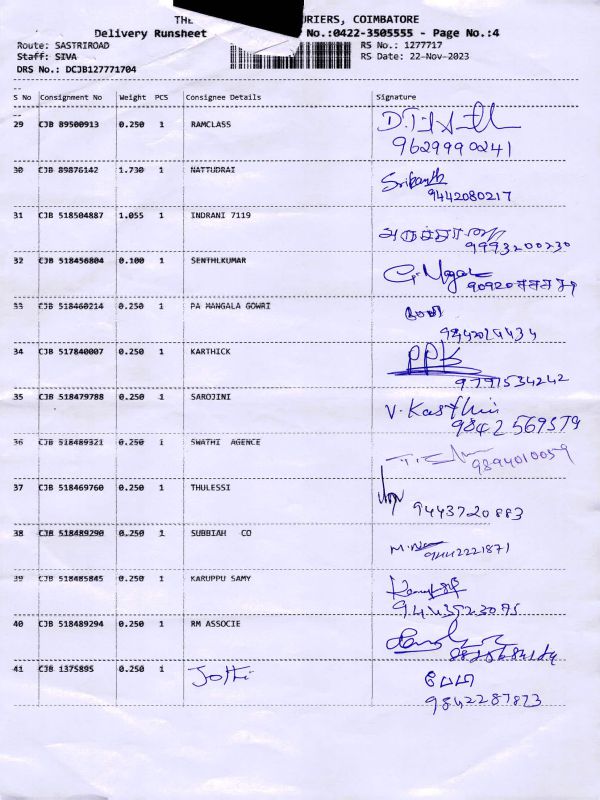 THE URIERS, COIMBATORE
Delivery Runsheet No.:0422-3505555 - Page No.:4
Route: SASTRIROAD RS No.: 1277717
Staff: SIVA RS Date: 22-Nov-2023
DRS No.: DCJB127771704
S No Consignment No Weight PCS Consignee Details Signature
29 CJB 89500913 0.250 1 RAMCLASS
9629990241
30 CJB 89876142 1.730 1 NATTUDRAI Srikanth
9442080217
31 CJB 518504887 1.055 1 INDRANI 7119
9993200230
32 CJB 518456804 0.100 1 SENTHLKUMAR
33 CJB 518460214 0.250 1 PA MANGALA GOWRI
34 CJB 517840007 0.250 1 KARTHICK PPK
9791534242
35 CJB 518479788 0.250 1 SAROJINI
9842569579
36 CJB 518489321 0.250 1 SWATHI AGENCE
9894010059
37 CJB 518469760 0.250 1 THULESSI
9443720883
38 CJB 518489290 0.250 1 SUBBIAH CO
9442221871
39 CJB 518485845 0.250 1 KARUPPU SAMY
40 CJB 518489294 0.250 1 RM ASSOCIE
41 CJB 1375895 0.250 1 Jothi
9842287873